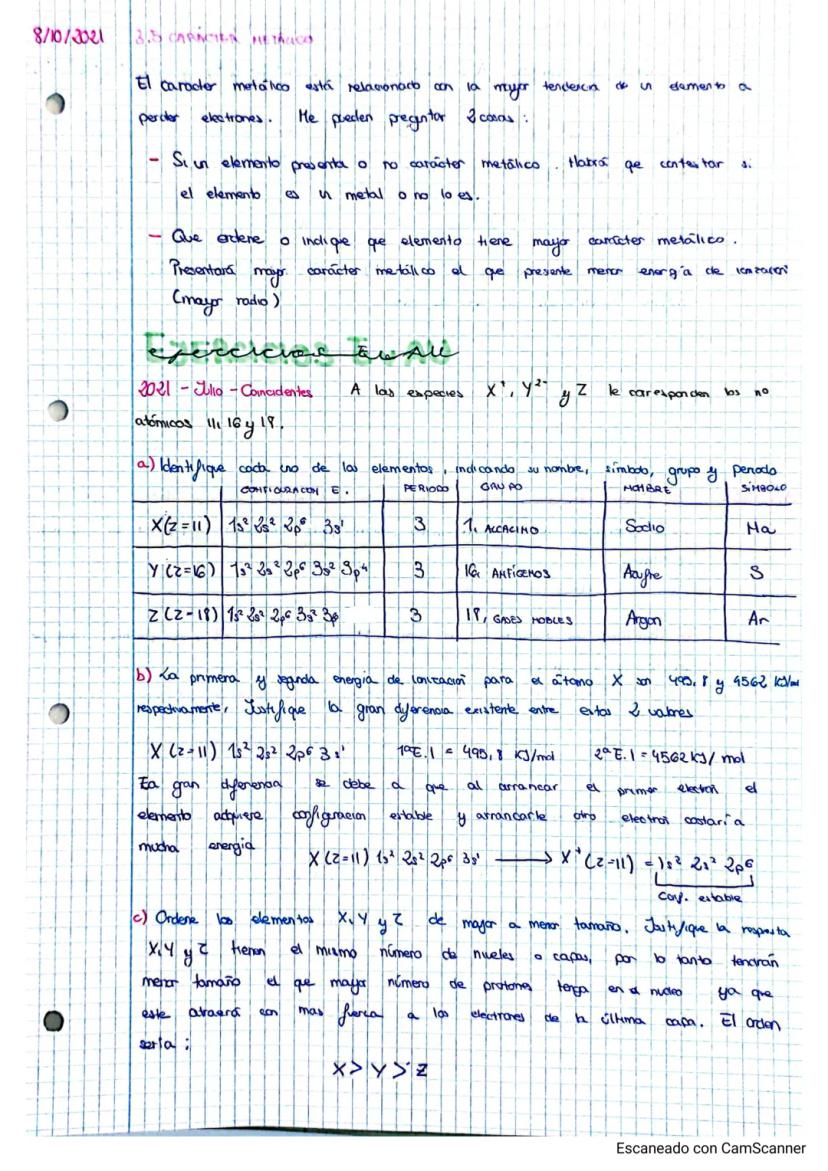 8/10/2021 3.5 CARÁCTER METÁLICO
El carácter metálico está relacionado con la mayor tendencia de un elemento a
perder electrones. Me pueden preguntar 2 cosas:
- Si un elemento presenta o no carácter metálico. Habrá que contestar si
el elemento es un metal o no lo es.
- Que ordene o indique que elemento tiene mayor carácter metálico.
Presentará mayor carácter metálico el que presente menor energía de ionización
(mayor radio)
Ejercicios EvAU
2021 - Julio - Coincidentes A las especies X⁺, Y²⁻ y Z le corresponden los nº
atómicos 11, 16 y 18.
a) Identifique cada uno de los elementos, indicando su nombre, símbolo, grupo y periodo
CONFIGURACIÓN E. PERIODO GRUPO NOMBRE SÍMBOLO
X(z=11) 1s² 2s² 2p⁶ 3s¹ 3 1, ALCALINO Sodio Na
Y (z=16) 1s² 2s² 2p⁶ 3s² 3p⁴ 3 16, ANFÍGENOS Azufre S
Z (Z-18) 1s² 2s² 2p⁶ 3s² 3p 3 18, GASES NOBLES Argon Ar
b) La primera y segunda energía de ionización para el átomo X son 495,8 y 4562 KJ/mol
respectivamente, Justifique la gran diferencia existente entre estos 2 valores
X (z=11) 1s² 2s² 2p⁶ 3s¹ 1ªE.I = 495,8 KJ/mol 2ªE.I = 4562 KJ/mol
La gran diferencia se debe a que al arrancar el primer electrón el
elemento adquiere configuración estable y arrancarle otro electrón costaría
mucha energía X (z=11) 1s² 2s² 2p⁶ 3s¹ → X⁺ (z=11) = 1s² 2s² 2p⁶
conf. estable
c) Ordene los elementos X, Y y Z de mayor a menor tamaño. Justifique la respuesta
X, Y y Z tienen el mismo número de niveles o capas, por lo tanto tendrán
menor tamaño el que mayor número de protones tenga en el nucleo ya que
este atraerá con mas fuerza a los electrones de la última capa. El orden
sería:
X > Y > Z
Escaneado con CamScanner